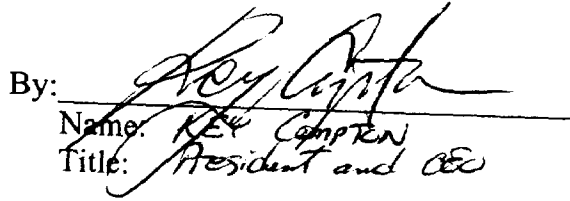 By: Key Compton
Name: KEY COMPTON
Title: President and CEO